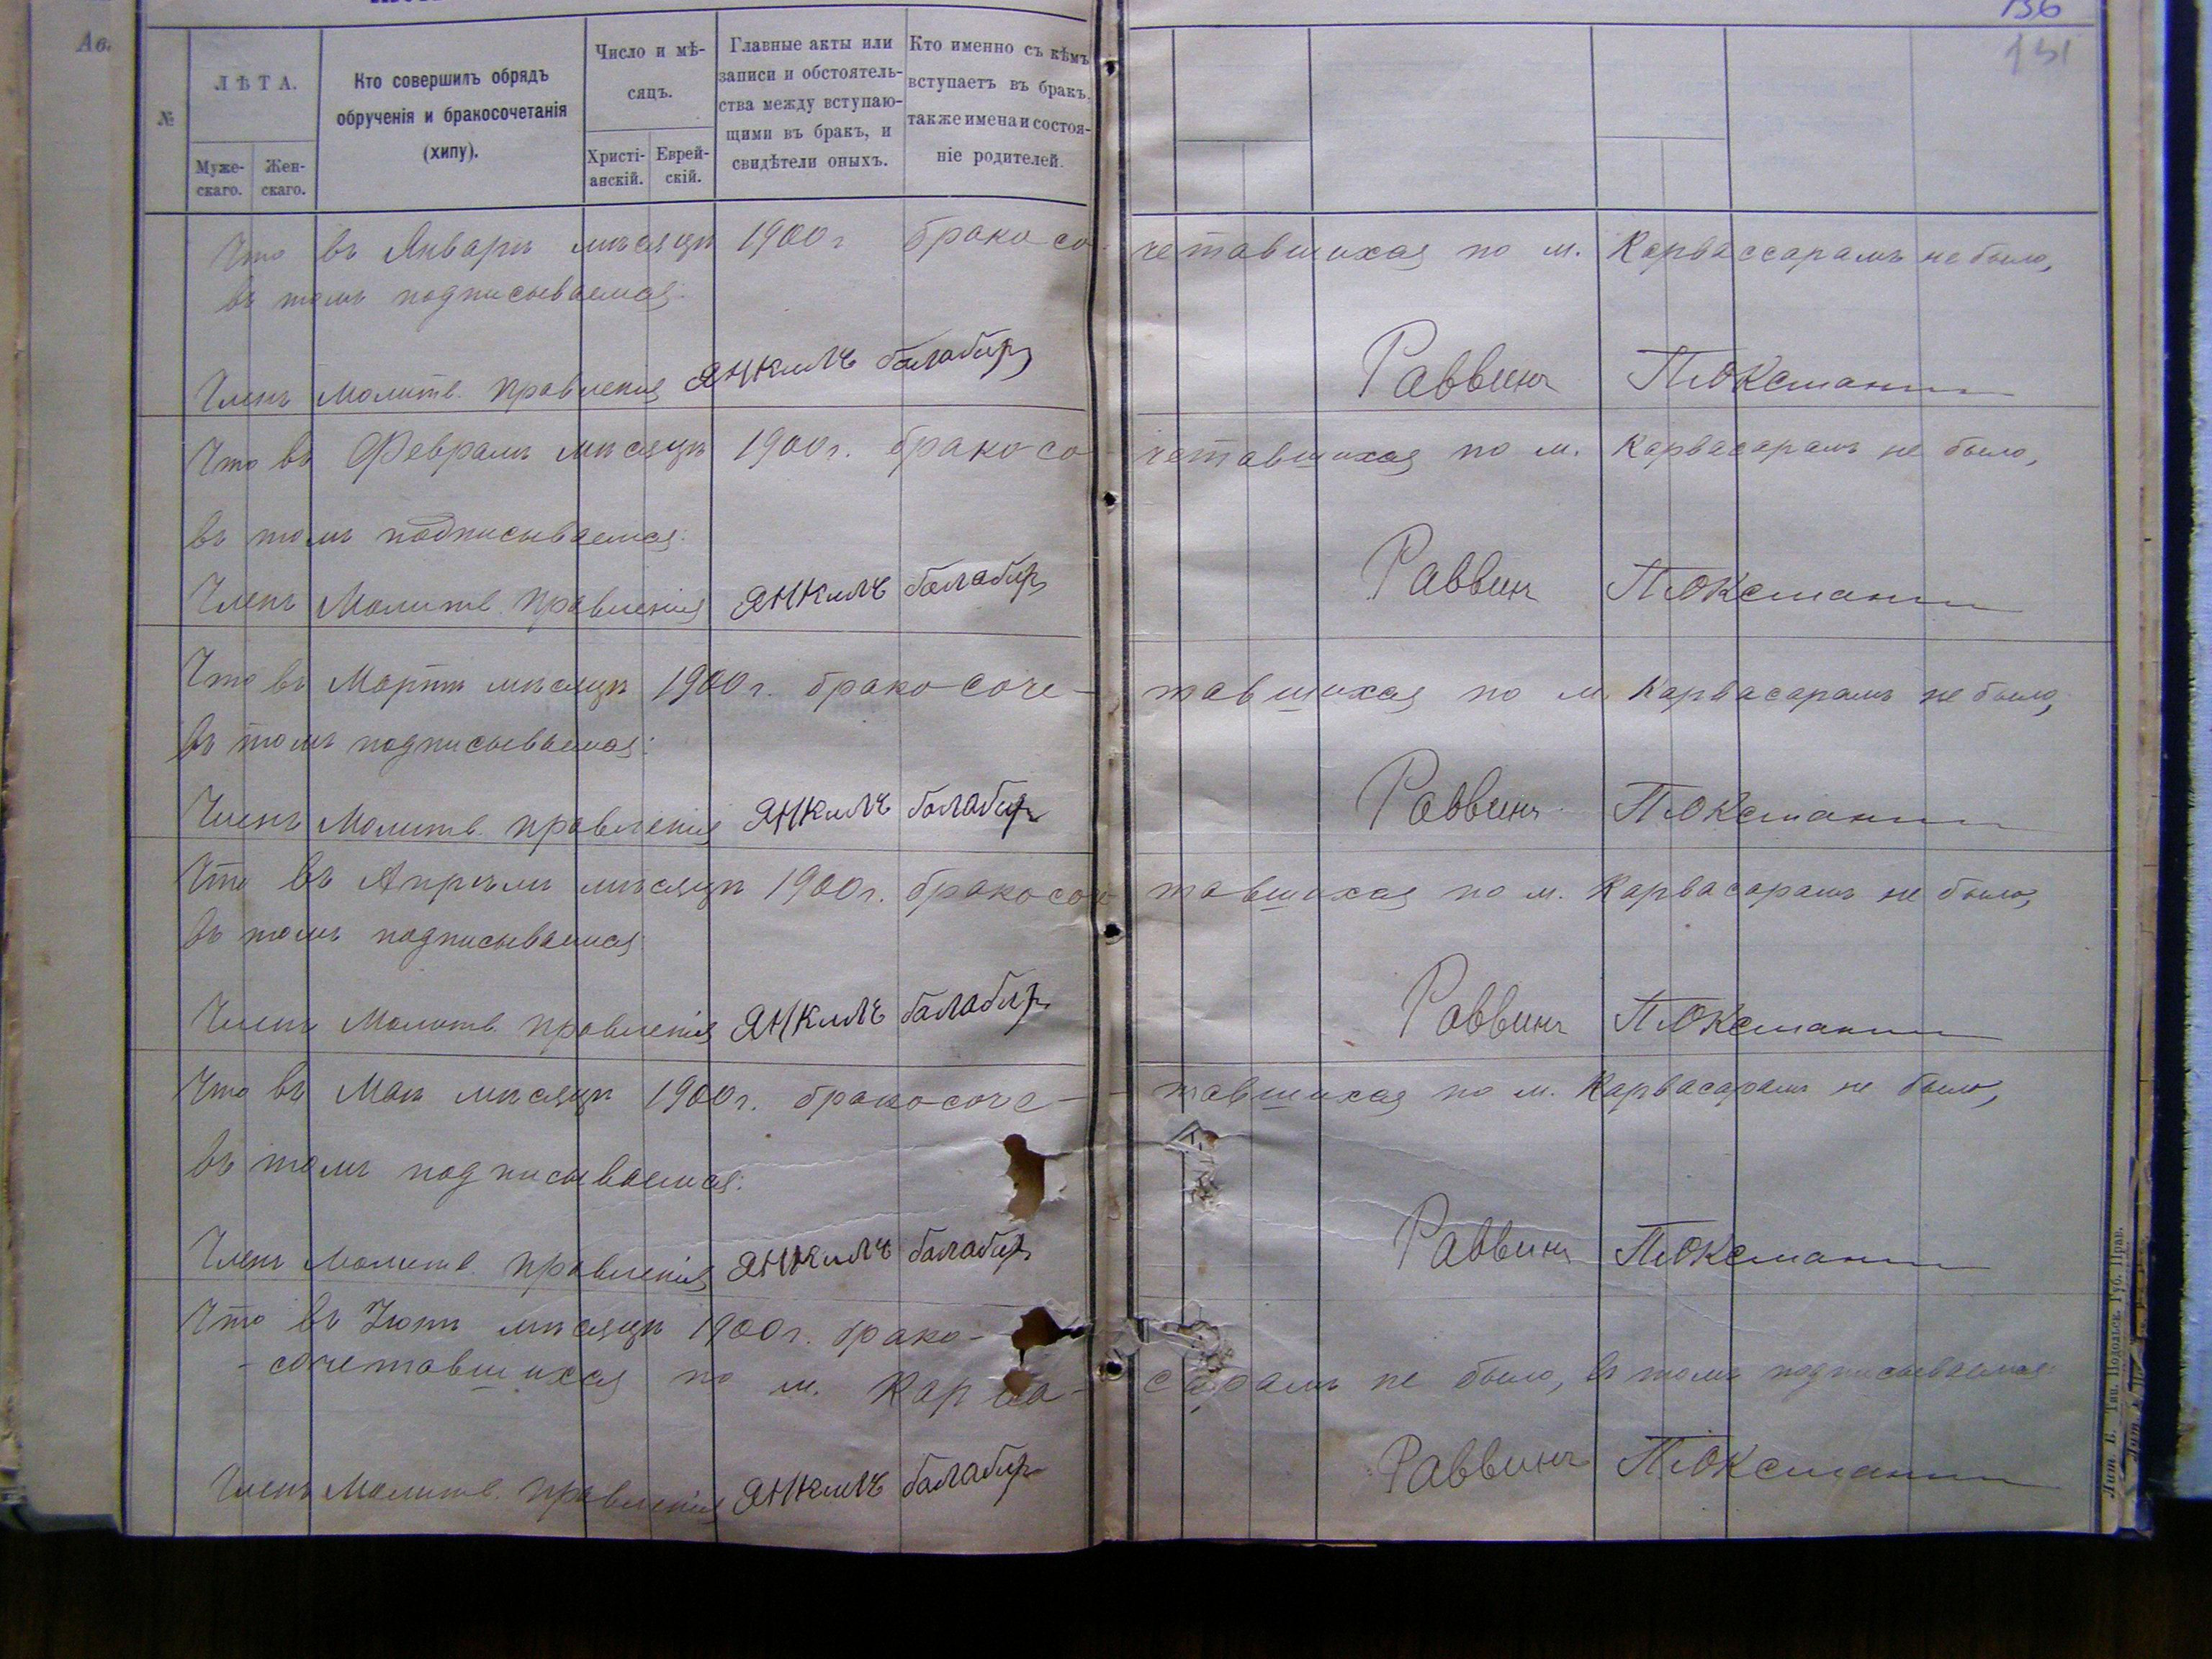 136
131
Ав.
№
ЛѢТА.
Муже-
скаго.
Жен-
скаго.
Кто совершилъ обрядъ
обрученія и бракосочетанія
(хипу).
Число и мѣ-
сяцъ.
Христі-
анскій.
Еврей-
скій.
Главные акты или
записи и обстоятель-
ства между вступаю-
щими въ бракъ, и
свидѣтели оныхъ.
Кто именно съ кѣмъ
вступаетъ въ бракъ,
также имена и состоя-
ніе родителей.
Что въ Январѣ мѣсяцѣ 1900 г бракосо- четавшихся по м. Карвассарамъ не было,
въ томъ подписываемся:
Членъ Молитв. Правленія Янкилъ балабир Раввинъ П. Оксманъ
Что въ Февралѣ мѣсяцѣ 1900 г. бракосо четавшихся по м. Карвасарамъ не было,
въ томъ подписываемся:
Членъ Молитв. Правленія Янкилъ балабир Раввинъ П. Оксманъ
Что въ Мартѣ мѣсяцѣ 1900 г. бракосоче- тавшихся по м. Карвасарамъ не было,
въ томъ подписываемся:
Членъ Молитв. Правленія Янкилъ балабир Раввинъ П. Оксманъ
Что въ Апрѣлѣ мѣсяцѣ 1900 г. бракосоче тавшихся по м. Карвасарамъ не было,
въ томъ подписываемся:
Членъ Молитв. Правленія Янкилъ балабир Раввинъ П. Оксманъ
Что въ Маѣ мѣсяцѣ 1900 г. бракосоче- тавшихся по м. Карвасарамъ не было,
въ томъ подписываемся:
Членъ Молитв. Правленія Янкилъ балабир Раввинъ П. Оксманъ
Что въ Іюнѣ мѣсяцѣ 1900 г. брако-
-сочетавшихся по м. Карва- сарамъ не было, въ томъ подписываемся:
Членъ Молитв. Правленія Янкилъ балабир Раввинъ П. Оксманъ
Лит. Б. Тип. Подольск. Губ. Прав.